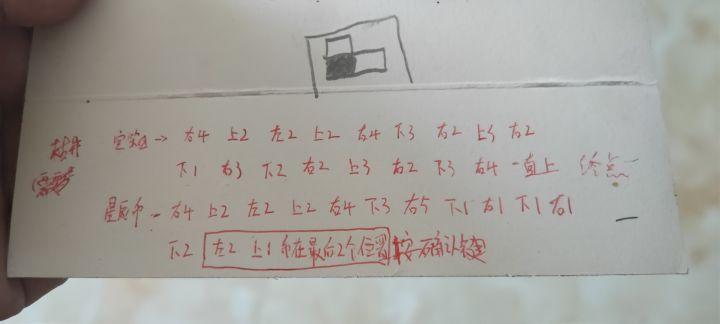 → 右4 上2 左2 上2 右4 下3 右2 上3 右2
下1 右3 下2 右2 上3 右2 下3 右4 一直上 终点
星辰币 → 右4 上2 左2 上2 右4 下3 右5 下1 右1 下1 右1
下2 左2 上1 币在最后2个位置 按确认键